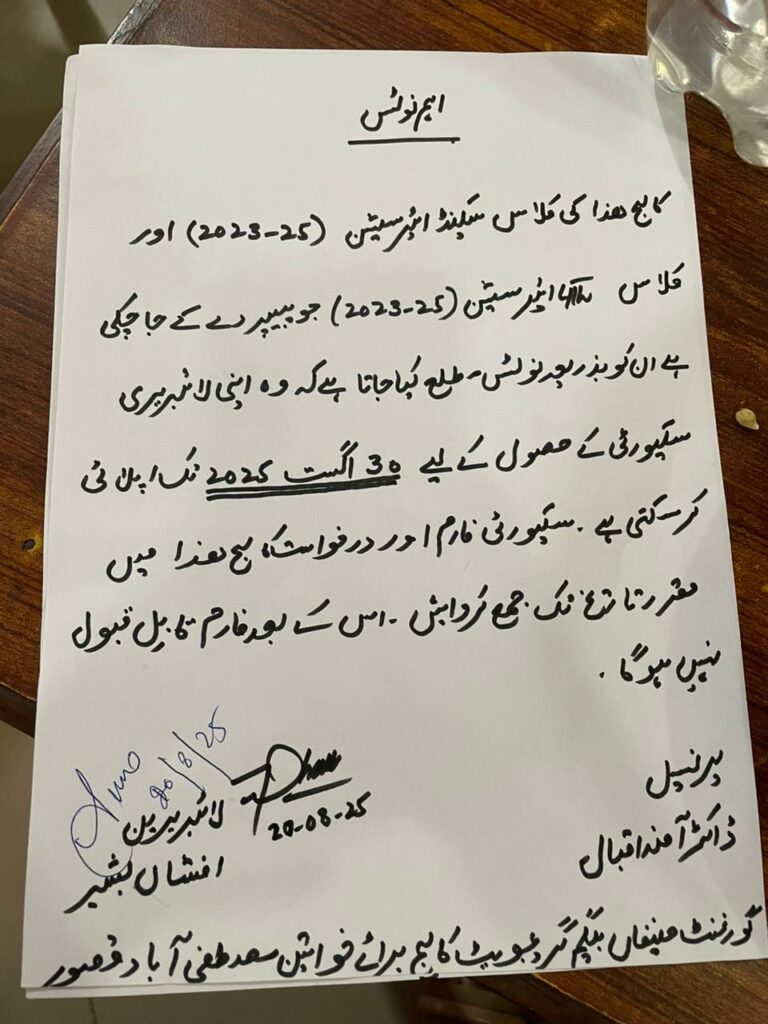 اہم نوٹس
کالج ھذا کی کلاس سیکنڈ ائیر سیشن (2023-25) اور
کلاس ائیر سیشن (2023-25) جو پیپر دے کے جا چکی
ہے ان کو بذریعہ نوٹس مطلع کیا جاتا ہے کہ وہ اپنی لائبریری
سکیورٹی کے حصول کے لیے 30 اگست 2025 تک اپلائی
کر سکتی ہے۔ سکیورٹی فارم اور درخواست کالج ھذا میں
مقررہ تاریخ تک جمع کروائیں۔ اس کے بعد فارم قابل قبول
نہیں ہوگا۔
پرنسپل
ڈاکٹر آمنہ اقبال
20/8/25
20-08-25
لائبریرین
افشاں بشیر
گورنمنٹ حنیفاں بیگم گریجویٹ کالج برائے خواتین مصطفی آباد قصور